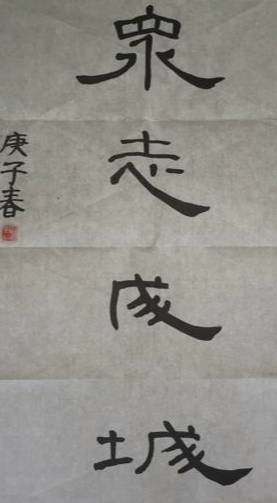 眾志成城
庚子春